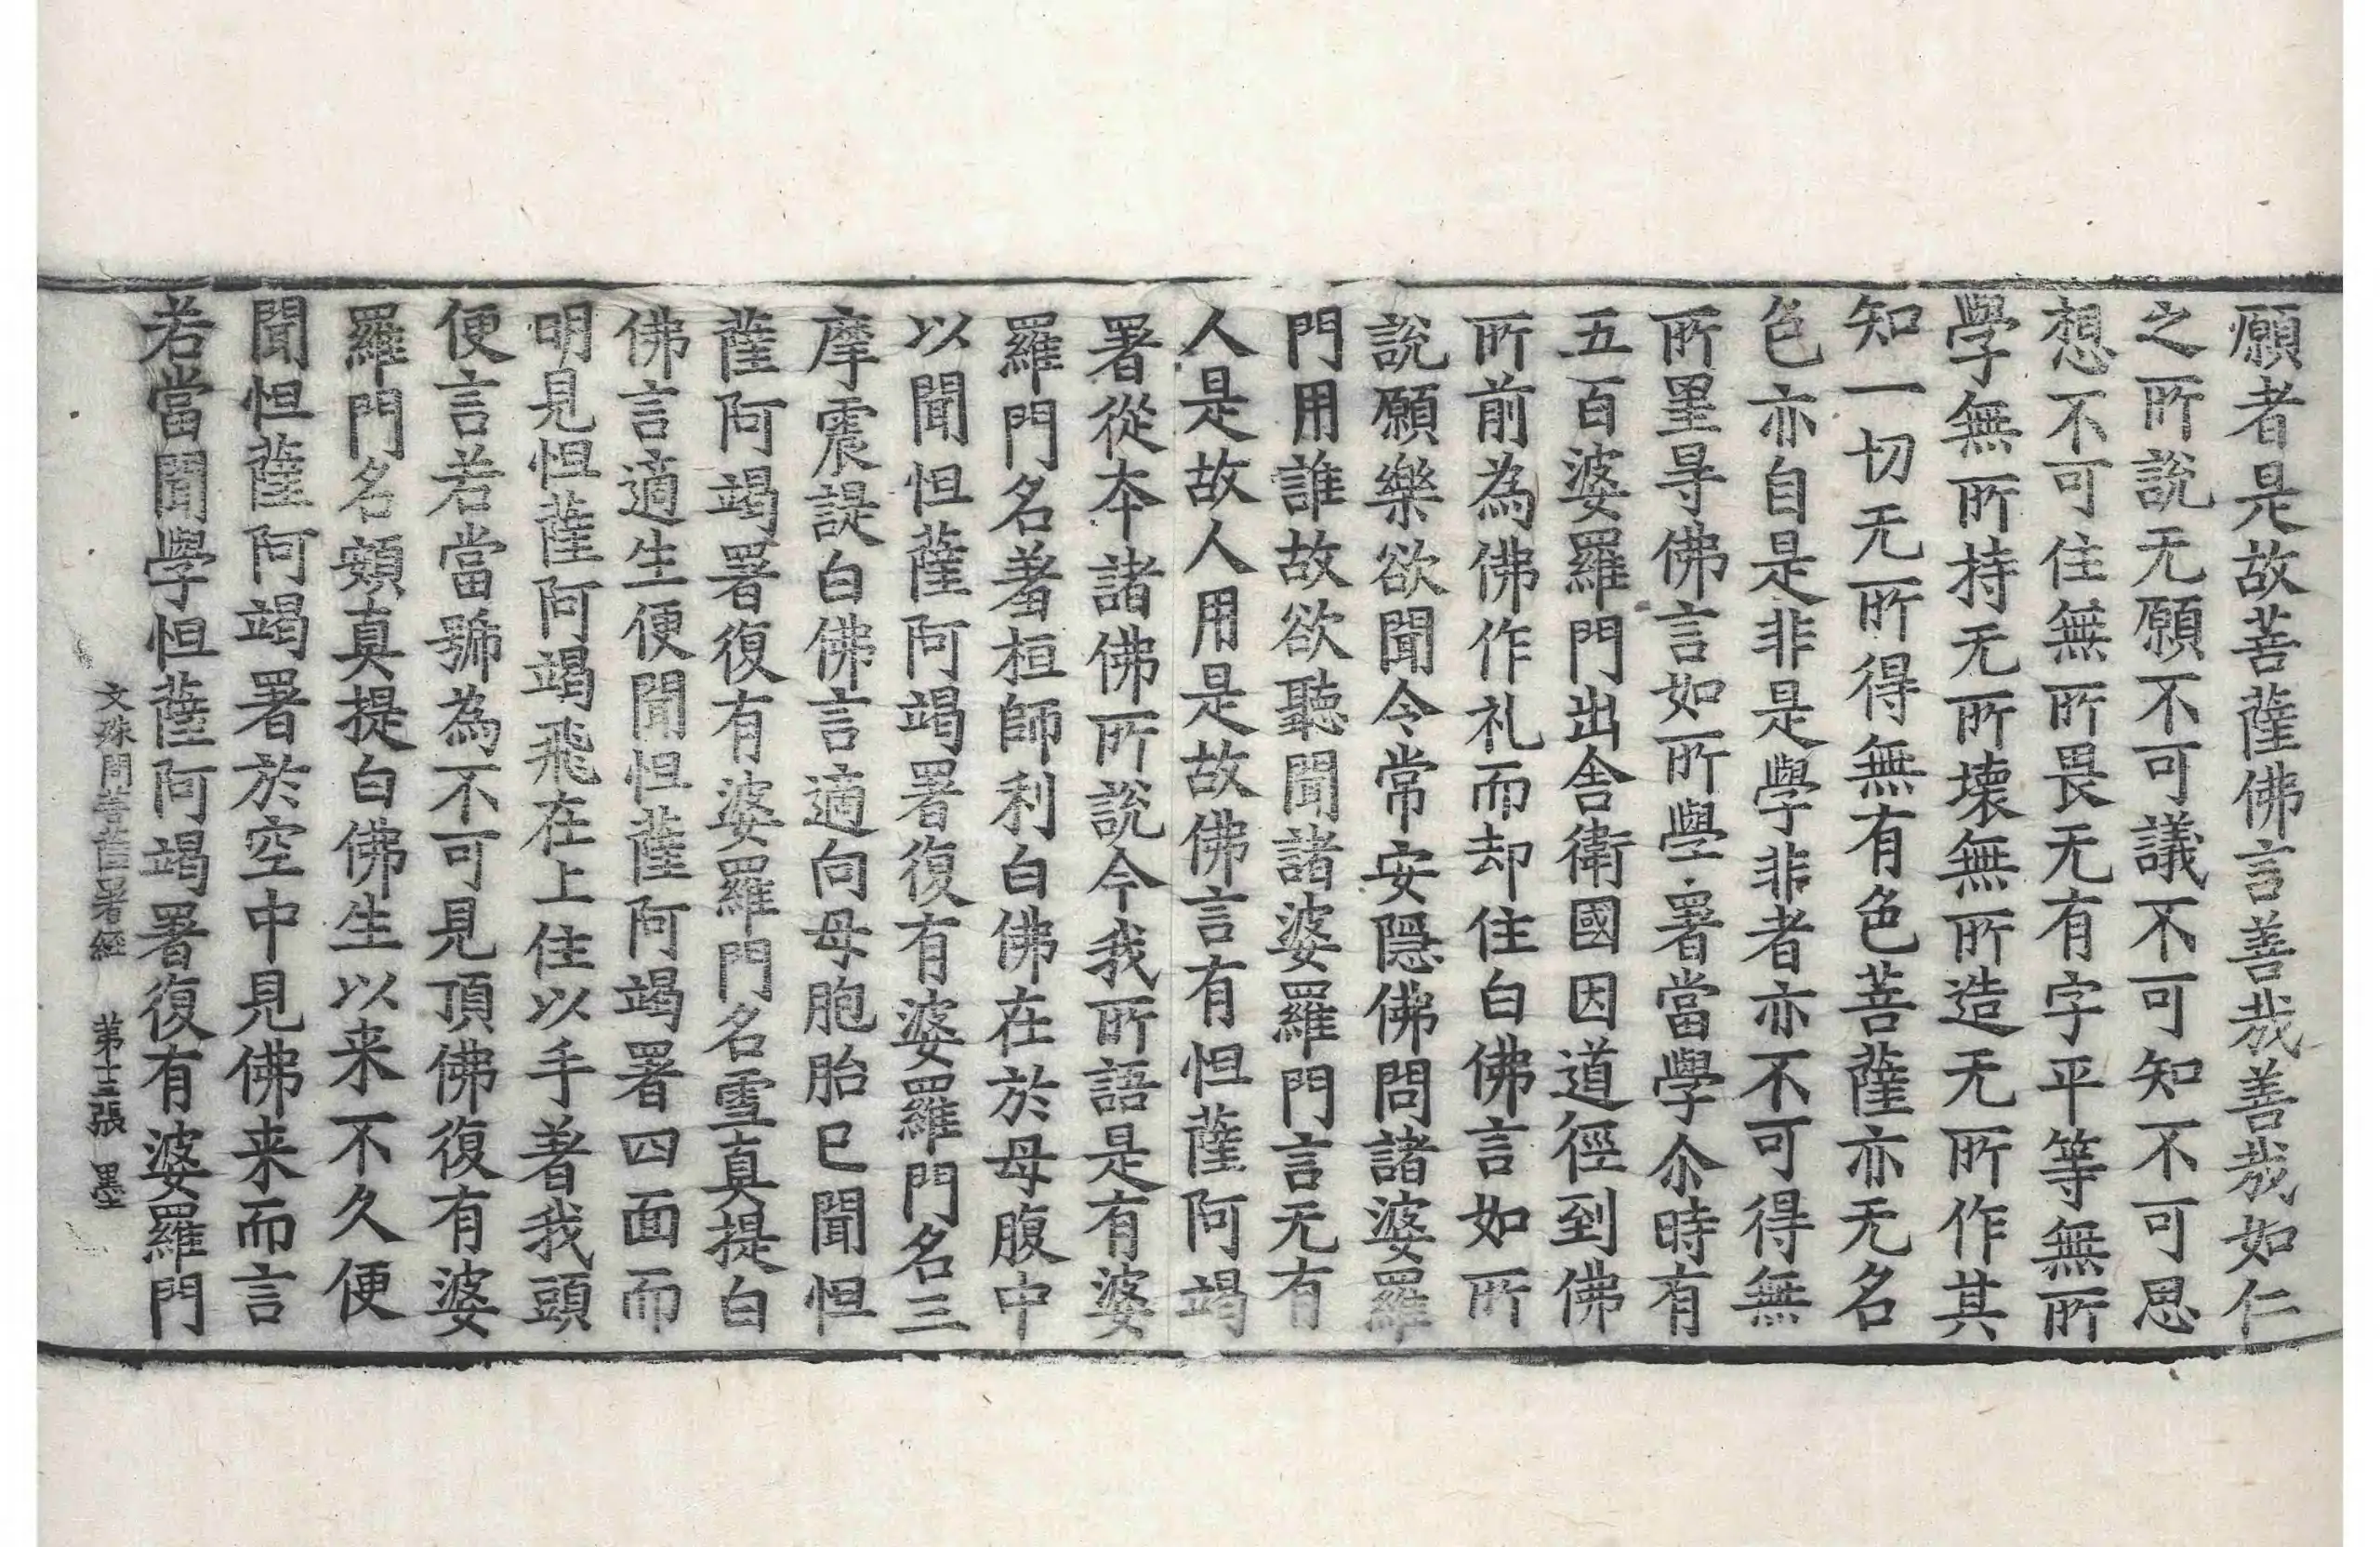 願者是故菩薩佛言善哉善哉如仁
之所說无願不可議不可知不可思
想不可住無所畏无有字平等無所
學無所持无所壞無所造无所作其
知一切无所得無有色菩薩亦无名
色亦自是非是學非者亦不可得無
所罣㝵佛言如所學署當學尒時有
五百婆羅門出舍衛國因道徑到佛
所前為佛作礼而却住白佛言如所
說願樂欲聞令常安隱佛問諸婆羅
門用誰故欲聽聞諸婆羅門言无有
人是故人用是故佛言有怛薩阿竭
署從本諸佛所說今我所語是有婆
羅門名耆桓師利白佛在於母腹中
以聞怛薩阿竭署復有婆羅門名三
摩震提白佛言適向母胞胎已聞怛
薩阿竭署復有婆羅門名雪真提白
佛言適生便聞怛薩阿竭署四面而
明見怛薩阿竭飛在上住以手著我頭
便言若當號為不可見頂佛復有婆
羅門名頞真提白佛生以来不久便
聞怛薩阿竭署於空中見佛来而言
若當聞學怛薩阿竭署復有婆羅門
文殊問菩薩署經 第十三張 墨